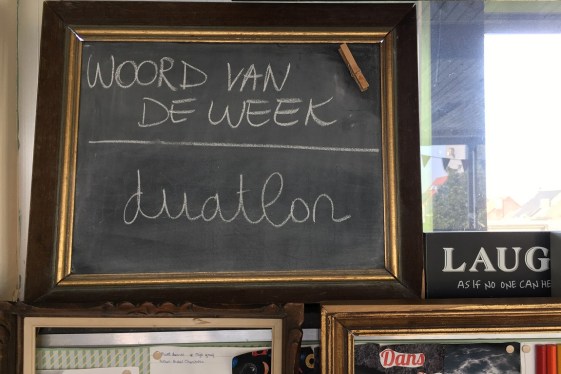 WOORD VAN
DE WEEK
duatlon
LAUG
AS IF NO ONE CAN HE
Dans